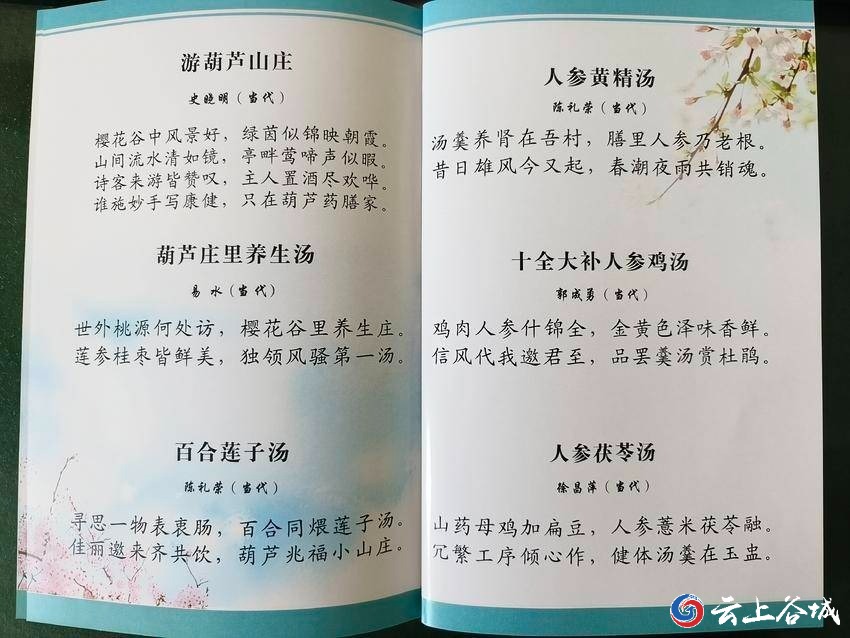 游葫芦山庄
史晓明（当代）
樱花谷中风景好，绿茵似锦映朝霞。
山间流水清如镜，亭畔莺啼声似暇。
诗客来游皆赞叹，主人置酒尽欢哗。
谁施妙手写康健，只在葫芦药膳家。
葫芦庄里养生汤
易水（当代）
世外桃源何处访，樱花谷里养生庄。
莲参桂枣皆鲜美，独领风骚第一汤。
百合莲子汤
陈礼荣（当代）
寻思一物表衷肠，百合同煨莲子汤。
佳丽邀来齐共饮，葫芦兆福小山庄。
人参黄精汤
陈礼荣（当代）
汤羹养肾在吾村，膳里人参乃老根。
昔日雄风今又起，春潮夜雨共销魂。
十全大补人参鸡汤
郭成勇（当代）
鸡肉人参什锦全，金黄色泽味香鲜。
信风代我邀君至，品罢羹汤赏杜鹃。
人参茯苓汤
徐昌萍（当代）
山药母鸡加扁豆，人参薏米茯苓融。
冗繁工序倾心作，健体汤羹在玉盅。
云上谷城